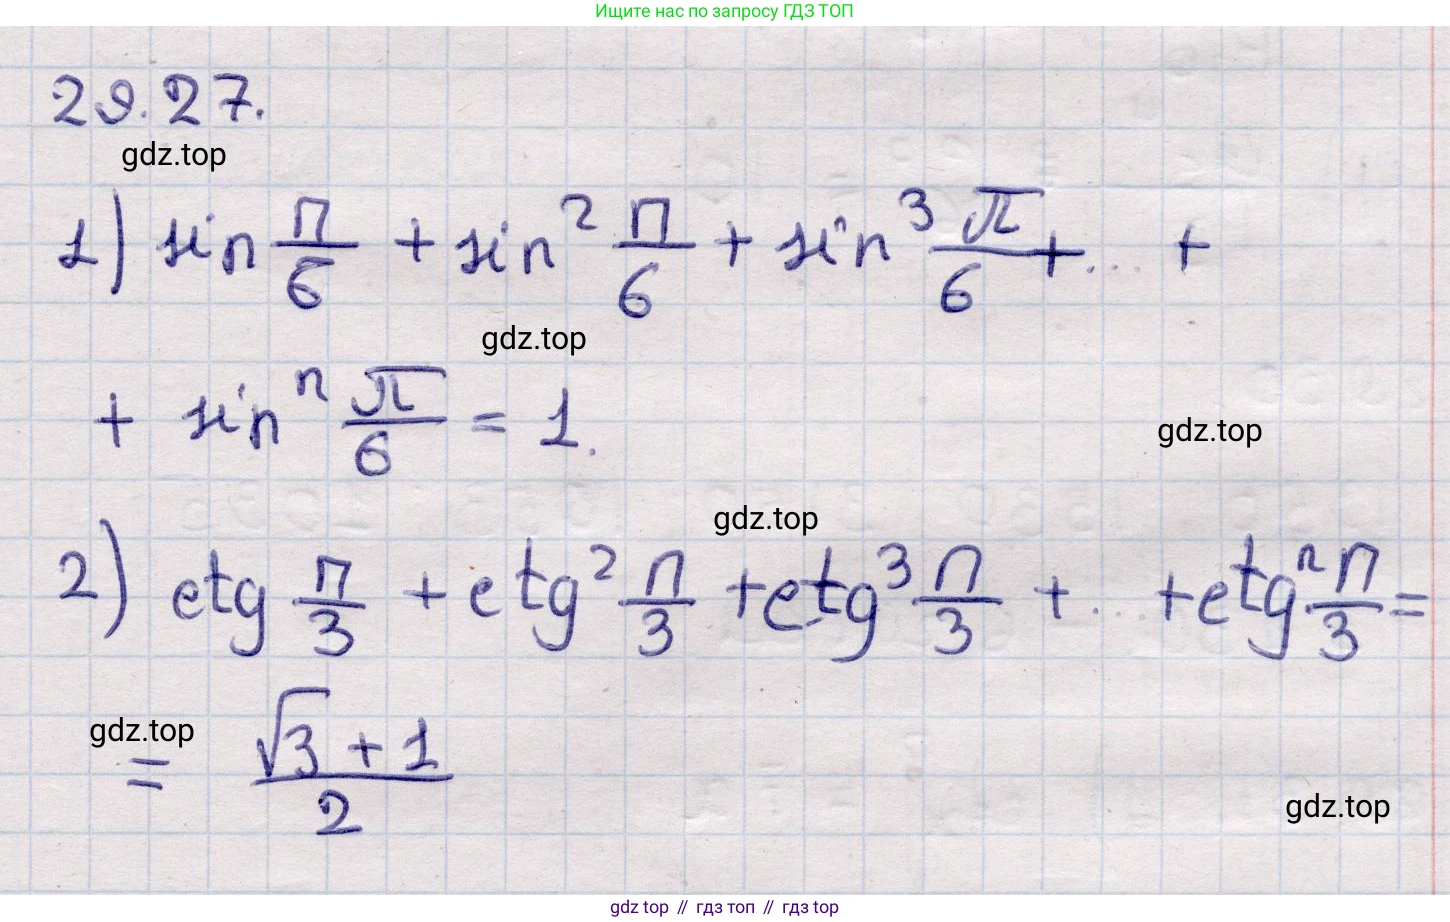 Ищите нас по запросу ГДЗ ТОП
29.27.
gdz.top
1) sin π/6 + sin² π/6 + sin³ π/6 + ... +
gdz.top
+ sinⁿ π/6 = 1.
gdz.top
gdz.top
2) ctg π/3 + ctg² π/3 + ctg³ π/3 + ... + ctgⁿ π/3 =
gdz.top
= (√3 + 1)/2
gdz.top
gdz top // гдз топ // гдз top